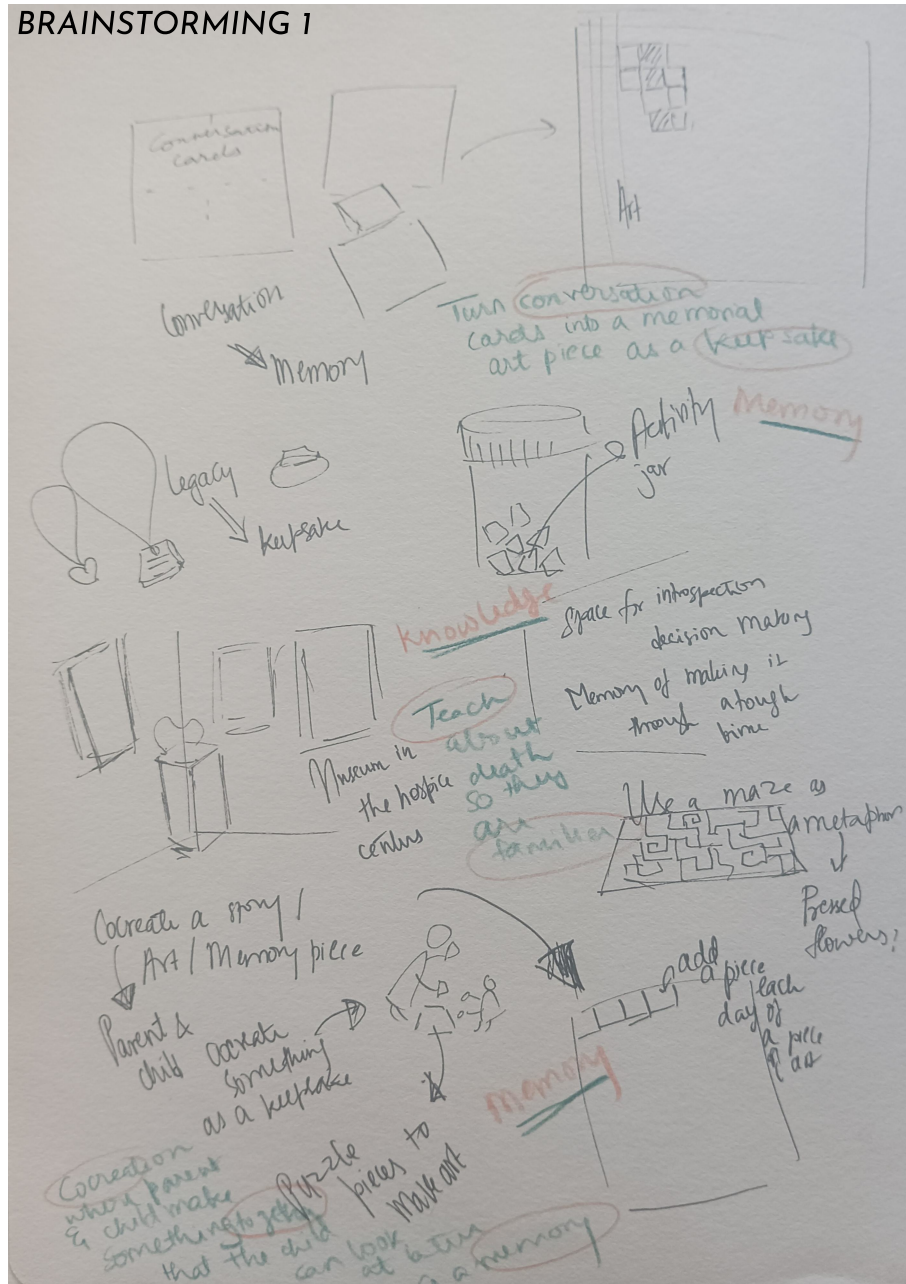 BRAINSTORMING 1
Conversation
cards
Art
Conversation
Memory
Turn conversation
cards into a memorial
art piece as a keepsake
Memory
Activity
jar
Legacy
keepsake
Knowledge
Space for introspection
decision making
Memory of making it
through a tough
time
Teach
about
death
so they
are
families
Museum in
the hospice
centers
Use a maze as
a metaphor
Pressed
flowers?
Cocreate a story /
Art / Memory piece
Parent &
child
cocreate
something
as a keepsake
add
a piece
each
day of
a piece
of art
Memory
Puzzle
pieces to
make art
Cocreation
when parent
& child make
something together
that the child
can look
at later
a memory